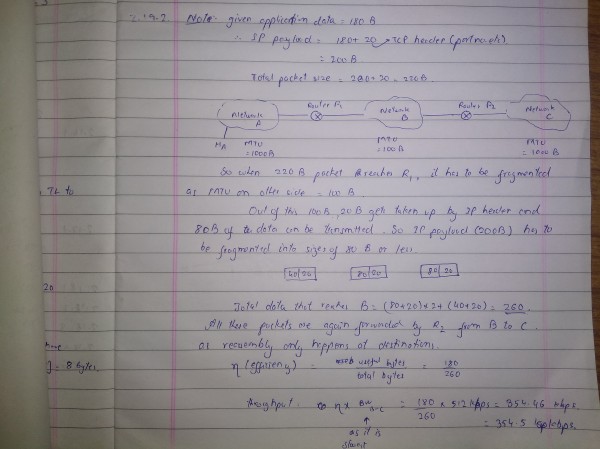 2.19.2 Note: given application data = 180 B
∴ IP payload = 180 + 20 → TCP header (portno etc).
= 200 B
Total packet size = 200 + 20 = 220 B.
Network A
Router R1
Network B
Router R2
Network C
HA
MTU = 1000 B
MTU = 100 B
MTU = 1000 B
So when 220 B packet reaches R1, it has to be fragmented
as MTU on other side = 100 B
Out of this 100 B, 20 B gets taken up by IP header and
80 B of data can be transmitted. So IP payload (200 B) has to
be fragmented into sizes of 80 B or less.
40 | 20
80 | 20
80 | 20
Total data that reaches B = (80+20)×2 + (40+20) = 260.
All these packets are again forwarded by R2 from B to C.
as reassembly only happens at destinations.
η (efficiency) = useful bytes / total bytes = 180 / 260
throughput = η × BW = 180/260 × 512 kbps = 354.46 kbps.
↑
as it is
= 354.5 kbps.
TL to
20
] = 8 bytes.